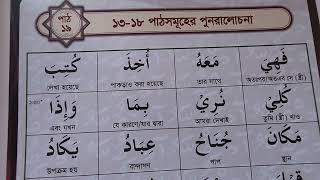 পাঠ
১৯
১৩-১৮ পাঠসমূহের পুনরালোচনা
فَهِيَ مَعَهُ أُخِذَ كُتِبَ
অতঃপর/অতএব সে (স্ত্রী) তার সাথে পাকড়াও করা হয়েছে লেখা হয়েছে
كُلِيْ نُرِيْ بِمَا وَإِذَا
তুমি (স্ত্রী) খাও আমরা দেখাই যে কারণে/যার দ্বারা এবং যখন
مَكَانَ جُنَاحُ عِبَادُ يَكَادُ
স্থান পাপ বান্দাগণ উপক্রম হয়